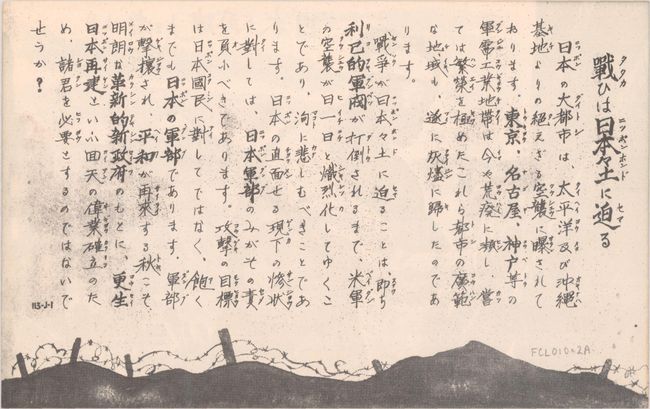 戰ひは日本々土に迫る
日本の大都市は、太平洋及び沖縄
基地よりの絶えざる空襲に曝されて
おります。東京、名古屋、神戸等の
軍需工業地帯は今や荒廃に頻し、嘗
ては繁榮を極めたこれら都市の廣範
な地域も、遂に灰燼に歸したのであ
ります。
戰爭が日本々土に迫ることは、即ち
利己的軍閥が打倒されるまで、米軍
の空襲が日一日と熾烈化してゆくこ
とであり、洵に悲しむべきことであ
ります。日本の直面せる現下の惨状
に對しては、日本軍部のみがその責
を負ふべきであります。攻撃の目標
は日本國民に對してではなく、飽く
までも日本の軍部であります。軍部
が撃攘され、平和が再来する秋こそ
明朗な革新的新政府のもとに、更生
日本再建といふ回天の偉業確立のた
め、諸君を必要とするのではないで
せうか？
113-J-1
FCL01002A